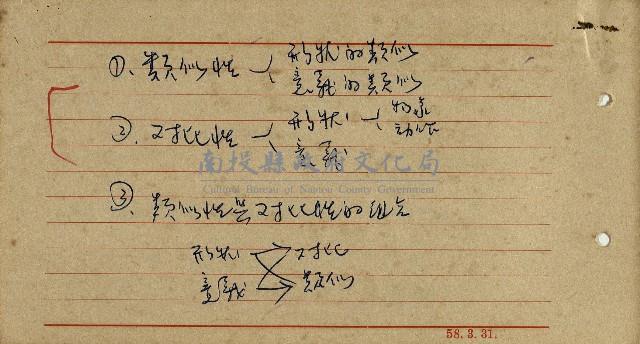 ①、類似性〈形狀的類似
意義的類似
②、对比性〈形狀〈物象
動作
意義
南投縣政府文化局
Cultural Bureau of Nantou County Government
③、類似性與对比性的組合
形狀 对比
意義 類似
58.3.31.